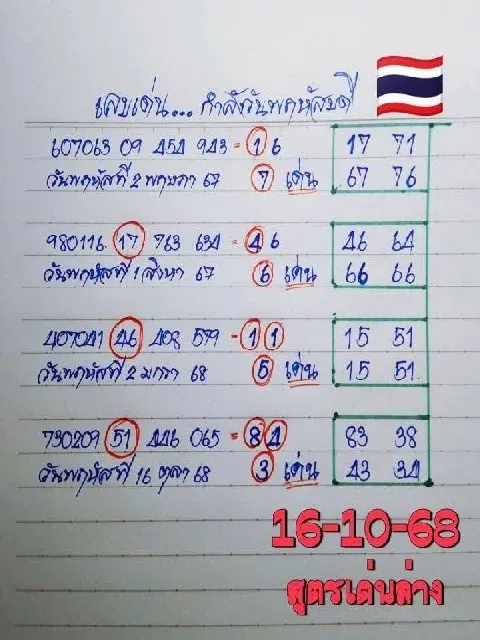 เลขเด่น... กำลังวันพฤหัสบดี
607063 09 454 943 = 16 17 71
วันพฤหัสที่ 2 พฤษภา 67 7 เด่น 67 76
980116 17 763 634 = 46 46 64
วันพฤหัสที่ 1 สิงหา 67 6 เด่น 66 66
407041 46 408 579 = 11 15 51
วันพฤหัสที่ 2 มกรา 68 5 เด่น 15 51
730209 51 446 065 = 84 83 38
วันพฤหัสที่ 16 ตุลา 68 3 เด่น 43 34
16-10-68
สูตรเด่นล่าง